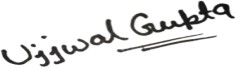 Ujjwal Gupta